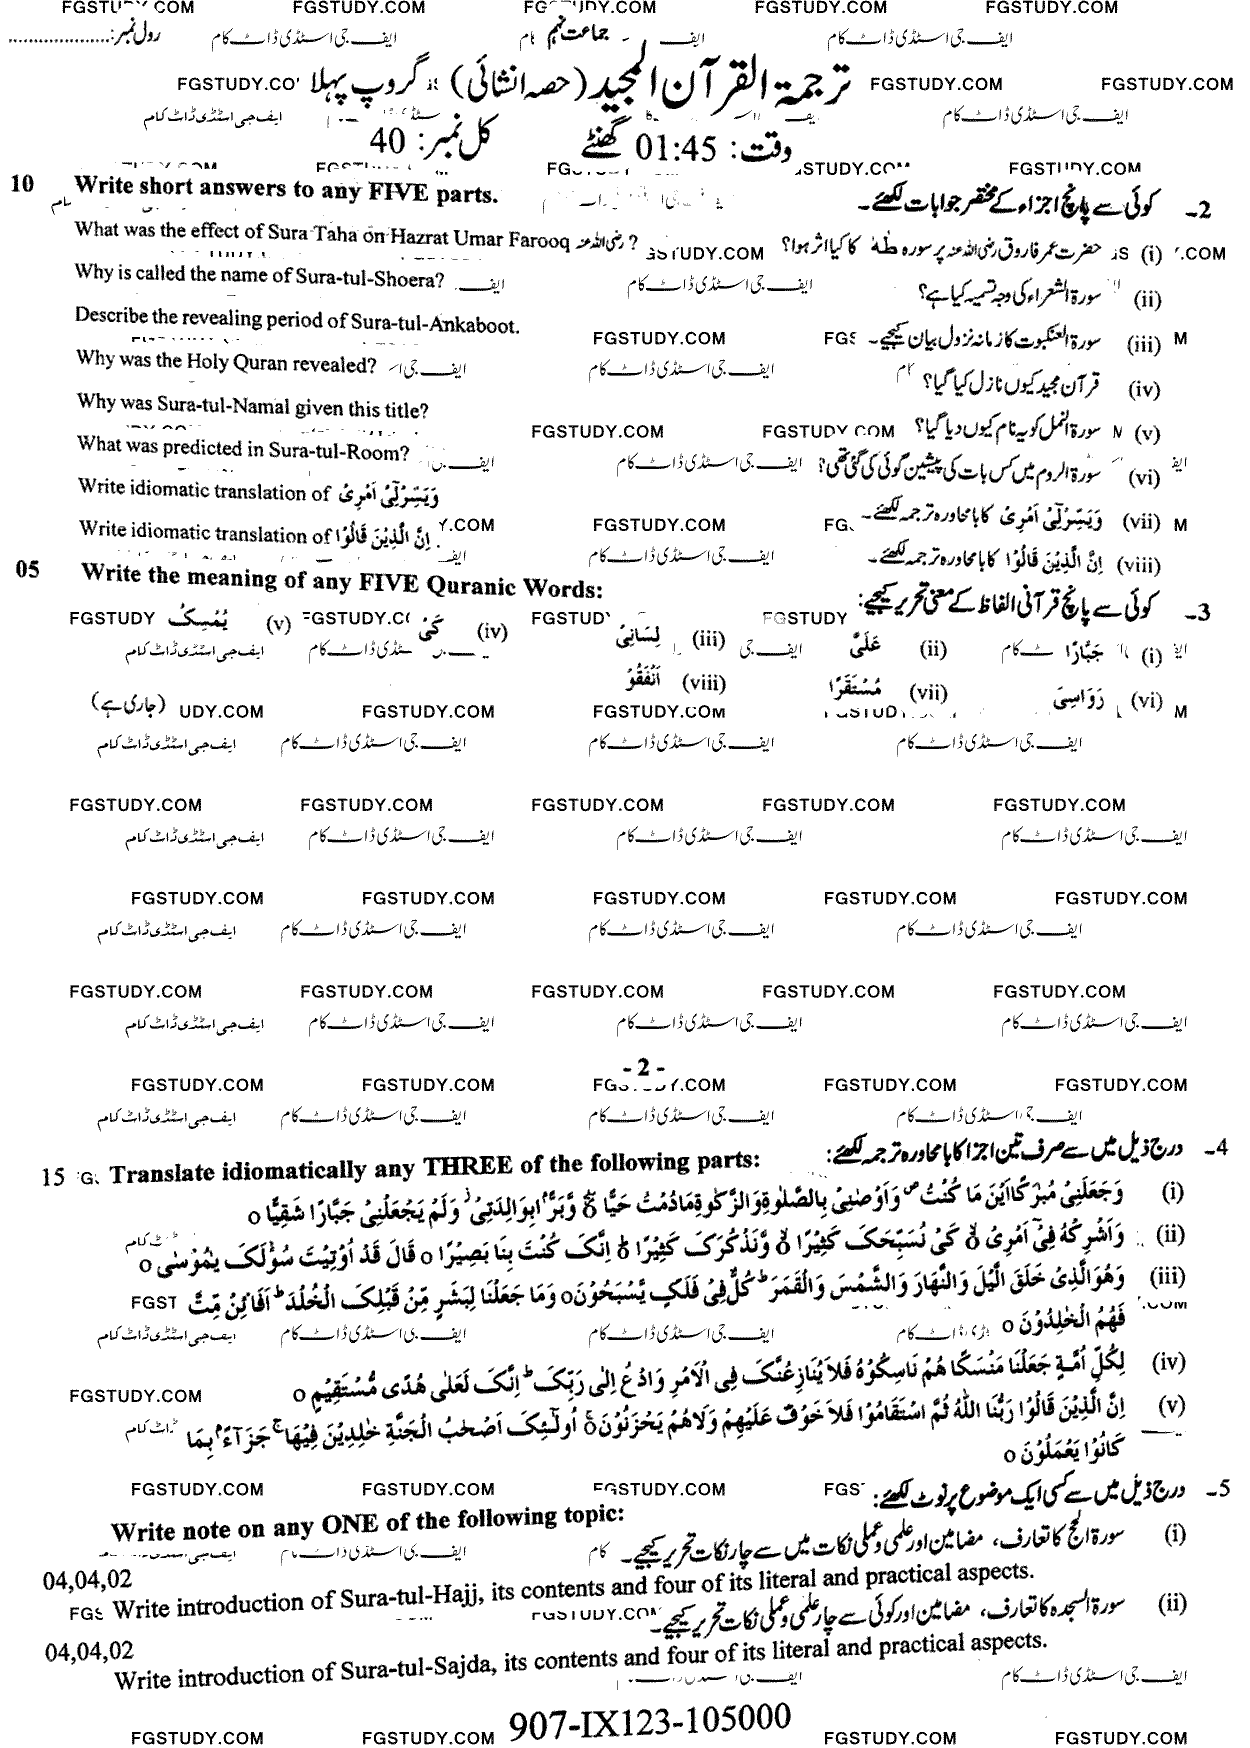 جماعت نہم
رول نمبر:....................
ترجمۃ القرآن المجید (حصہ انشائی) گروپ پہلا
وقت: 01:45 گھنٹے کل نمبر: 40
10 Write short answers to any FIVE parts. 2- کوئی سے پانچ اجزاء کے مختصر جوابات لکھئے۔
What was the effect of Sura Taha on Hazrat Umar Farooq رضی اللہ عنہ ? (i) حضرت عمر فاروق رضی اللہ عنہ پر سورہ طٰهٰ کا کیا اثر ہوا؟
Why is called the name of Sura-tul-Shoera? (ii) سورۃ الشعراء کی وجہ تسمیہ کیا ہے؟
Describe the revealing period of Sura-tul-Ankaboot. (iii) سورۃ العنکبوت کا زمانہ نزول بیان کیجیے۔
Why was the Holy Quran revealed? (iv) قرآن مجید کیوں نازل کیا گیا؟
Why was Sura-tul-Namal given this title? (v) سورۃ النمل کو یہ نام کیوں دیا گیا؟
What was predicted in Sura-tul-Room? (vi) سورۃ الروم میں کس بات کی پیشین گوئی کی گئی تھی؟
Write idiomatic translation of وَيَسِّرْلِيْٓ اَمْرِيْ (vii) وَيَسِّرْلِيْٓ اَمْرِيْ کا بامحاورہ ترجمہ لکھئے۔
Write idiomatic translation of اِنَّ الَّذِيْنَ قَالُوْا . (viii) اِنَّ الَّذِيْنَ قَالُوْا کا بامحاورہ ترجمہ لکھئے۔
05 Write the meaning of any FIVE Quranic Words: 3- کوئی سے پانچ قرآنی الفاظ کے معنی تحریر کیجیے:
(i) جَبَّارًا (ii) عَلَىَّ (iii) لِسَانِيْ (iv) كَيْ (v) يُمْسِكُ
(vi) رَوَاسِيَ (vii) مُسْتَقَرًّا (viii) اَنْفَقُوْ
(جاری ہے)
- 2 -
15 Translate idiomatically any THREE of the following parts: 4- درج ذیل میں سے صرف تین اجزا کا بامحاورہ ترجمہ لکھئے:
(i) وَجَعَلَنِيْ مُبٰرَكًا اَيْنَ مَا كُنْتُ ص وَاَوْصٰنِيْ بِالصَّلٰوةِ وَالزَّكٰوةِ مَادُمْتُ حَيًّا o وَّبَرًّاۢ بِوَالِدَتِيْ وَلَمْ يَجْعَلْنِيْ جَبَّارًا شَقِيًّا o
(ii) وَاَشْرِكْهُ فِيْٓ اَمْرِيْ o كَيْ نُسَبِّحَكَ كَثِيْرًا o وَّنَذْكُرَكَ كَثِيْرًا o اِنَّكَ كُنْتَ بِنَا بَصِيْرًا o قَالَ قَدْ اُوْتِيْتَ سُؤْلَكَ يٰمُوْسٰى o
(iii) وَهُوَالَّذِيْ خَلَقَ الَّيْلَ وَالنَّهَارَ وَالشَّمْسَ وَالْقَمَرَ ط كُلٌّ فِيْ فَلَكٍ يَّسْبَحُوْنَ o وَمَا جَعَلْنَا لِبَشَرٍ مِّنْ قَبْلِكَ الْخُلْدَ ط اَفَا۟ئِنْ مِّتَّ
فَهُمُ الْخٰلِدُوْنَ o
(iv) لِكُلِّ اُمَّةٍ جَعَلْنَا مَنْسَكًا هُمْ نَاسِكُوْهُ فَلَا يُنَازِعُنَّكَ فِي الْاَمْرِ وَادْعُ اِلٰى رَبِّكَ ط اِنَّكَ لَعَلٰى هُدًى مُّسْتَقِيْمٍ o
(v) اِنَّ الَّذِيْنَ قَالُوْا رَبُّنَا اللّٰهُ ثُمَّ اسْتَقَامُوْا فَلَا خَوْفٌ عَلَيْهِمْ وَلَاهُمْ يَحْزَنُوْنَ o اُولٰٓئِكَ اَصْحٰبُ الْجَنَّةِ خٰلِدِيْنَ فِيْهَا ج جَزَآءًۢ بِمَا
كَانُوْا يَعْمَلُوْنَ o
5- درج ذیل میں سے کسی ایک موضوع پر نوٹ لکھئے:
Write note on any ONE of the following topic:
(i) سورۃ الحج کا تعارف، مضامین اور علمی و عملی نکات میں سے چار نکات تحریر کیجیے۔
04,04,02 Write introduction of Sura-tul-Hajj, its contents and four of its literal and practical aspects.
(ii) سورۃ السجدہ کا تعارف، مضامین اور کوئی سے چار علمی و عملی نکات تحریر کیجیے۔
04,04,02 Write introduction of Sura-tul-Sajda, its contents and four of its literal and practical aspects.
907-IX123-105000
FGSTUDY.COM
ایف جی اسٹڈی ڈاٹ کام